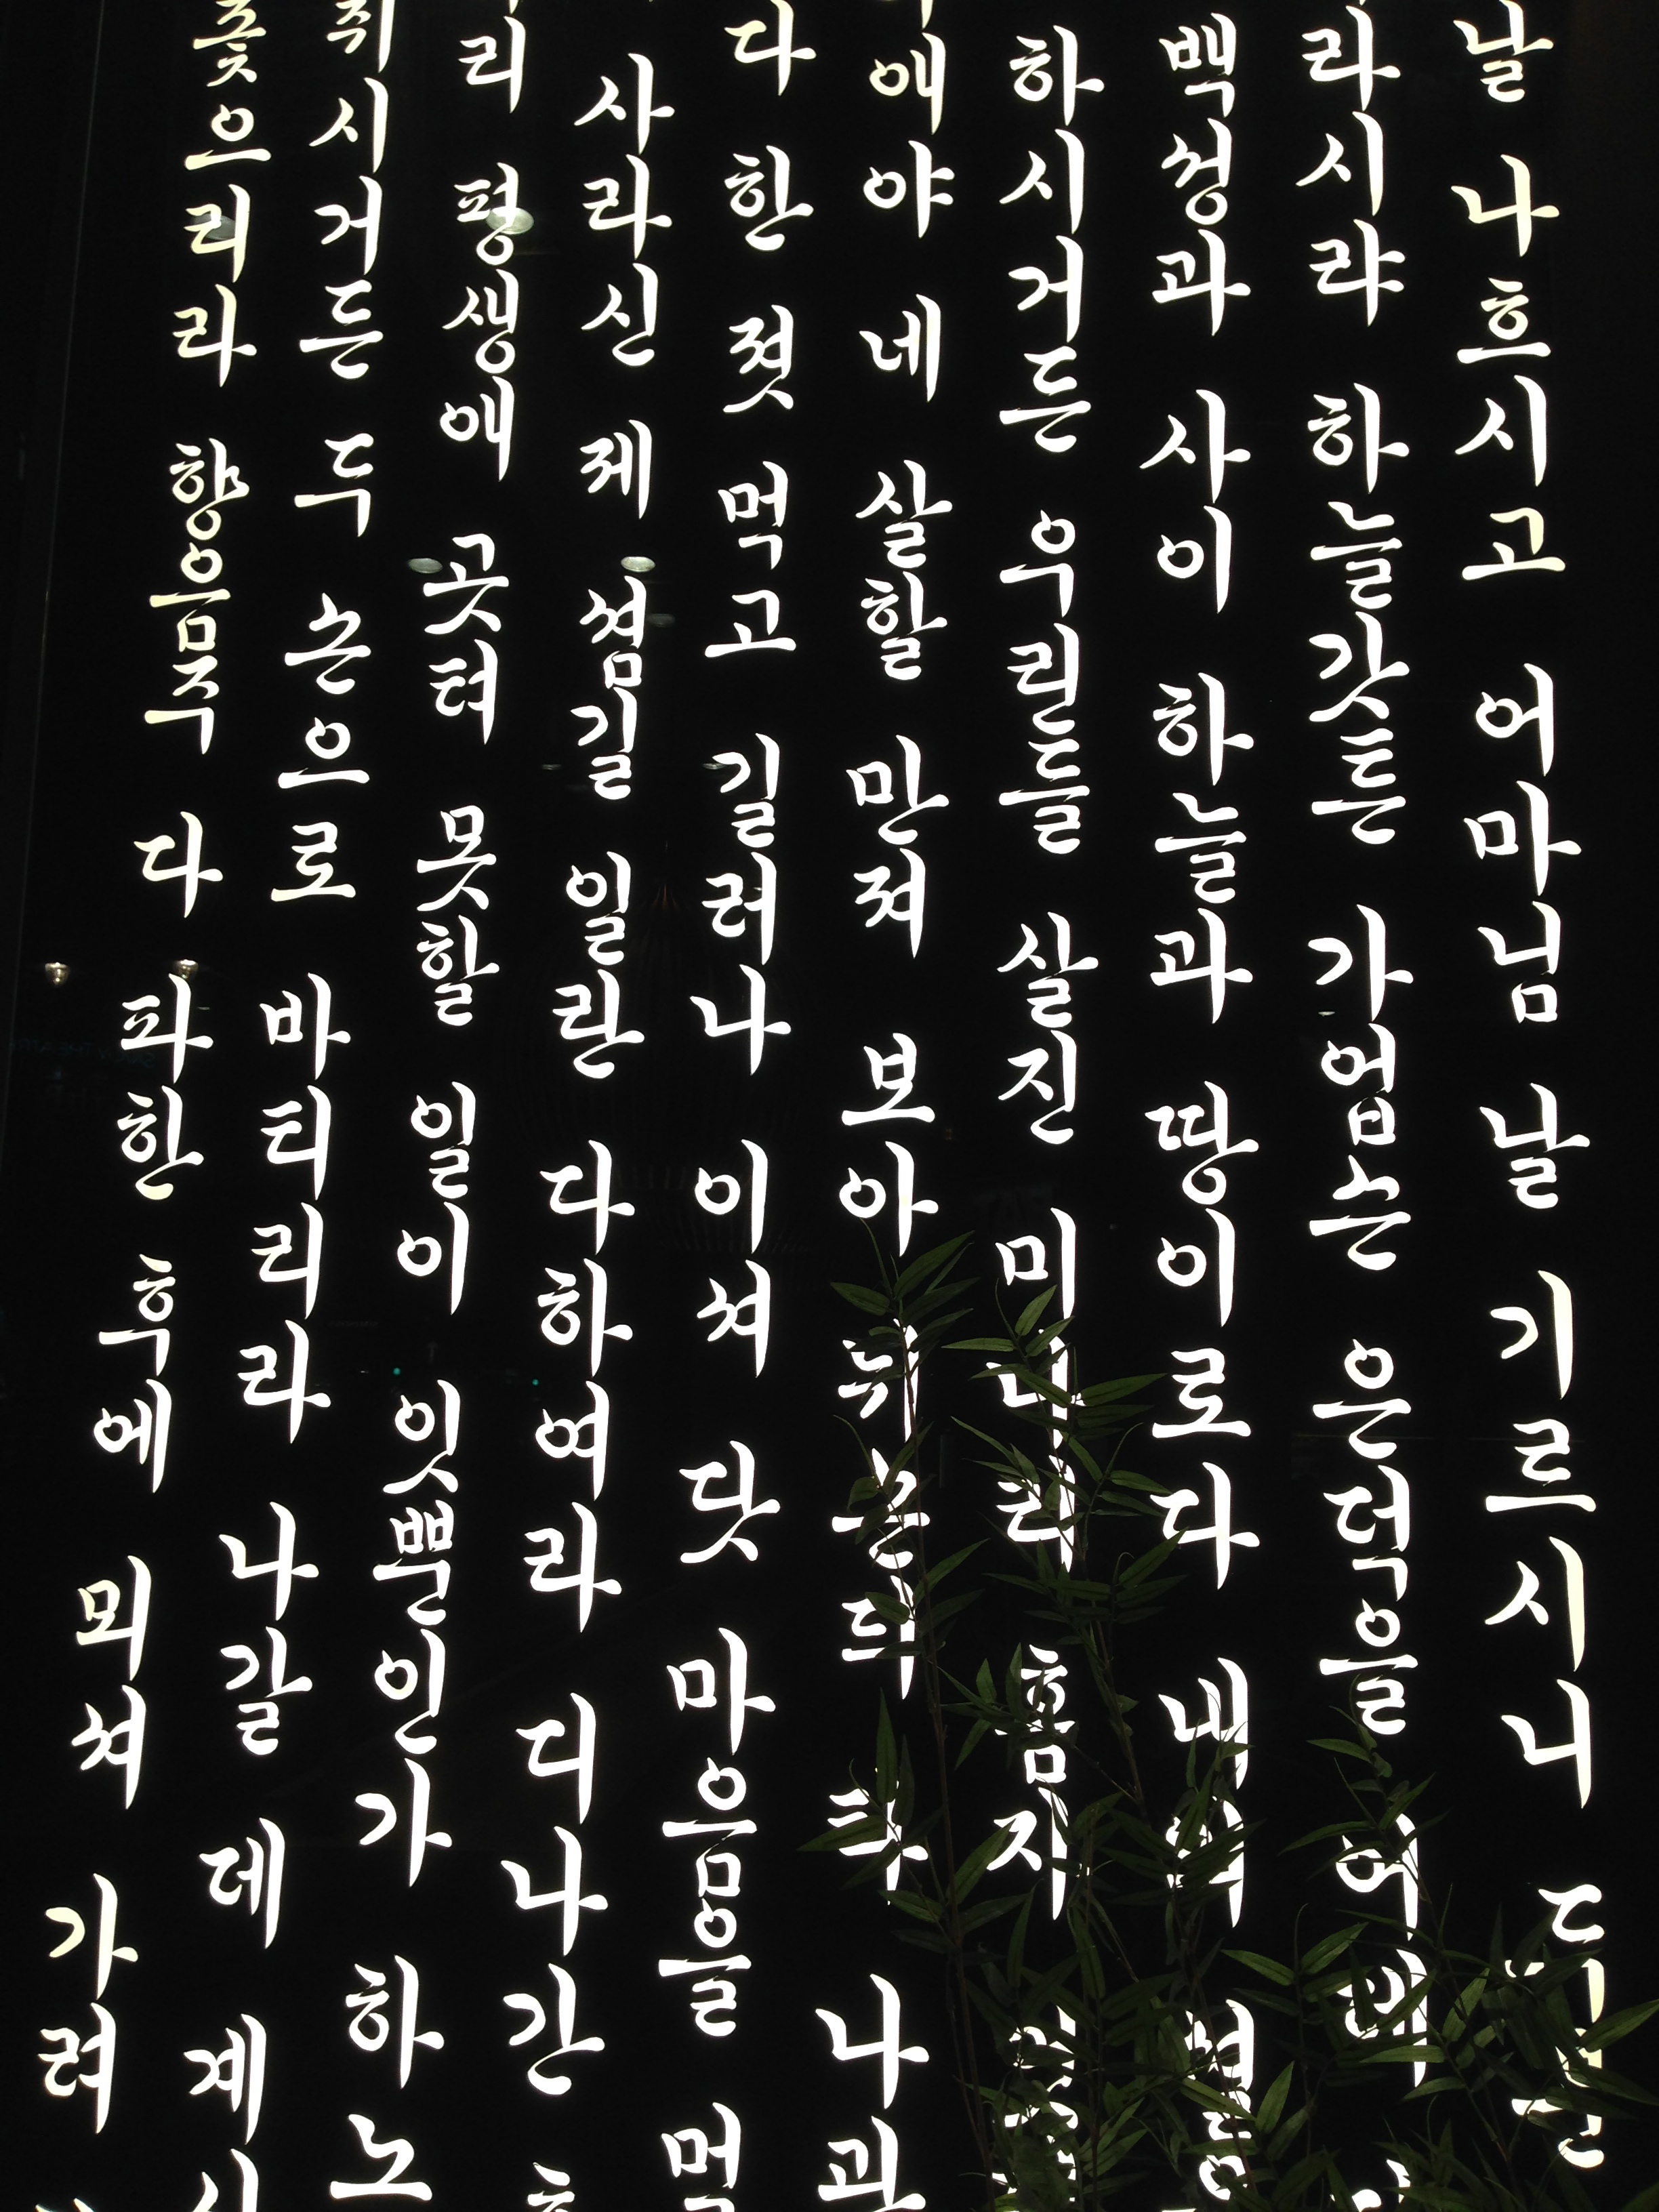 날 나흐시고 어마님 날 기르시니
라시랴 하늘갓튼 가업슨 은덕을 어데
백성과 사이 하늘과 땅이로다 내
하시거든 우린들 살진 미나리 홈자
애야 네 살할 만져 보아 뉘손듸 타 나괴
다 한 졋 먹고 길러나 이셔 닷 마음을 먹
사라신 제 셤길 일란 다하여라 디나간
리 평생애 곳텨 못할 일이 잇뿐인가 하노
쥐시거든 두 손으로 바티리라 나갈 데 계시
으리라 향음주 다 파한 후에 뫼셔 가려